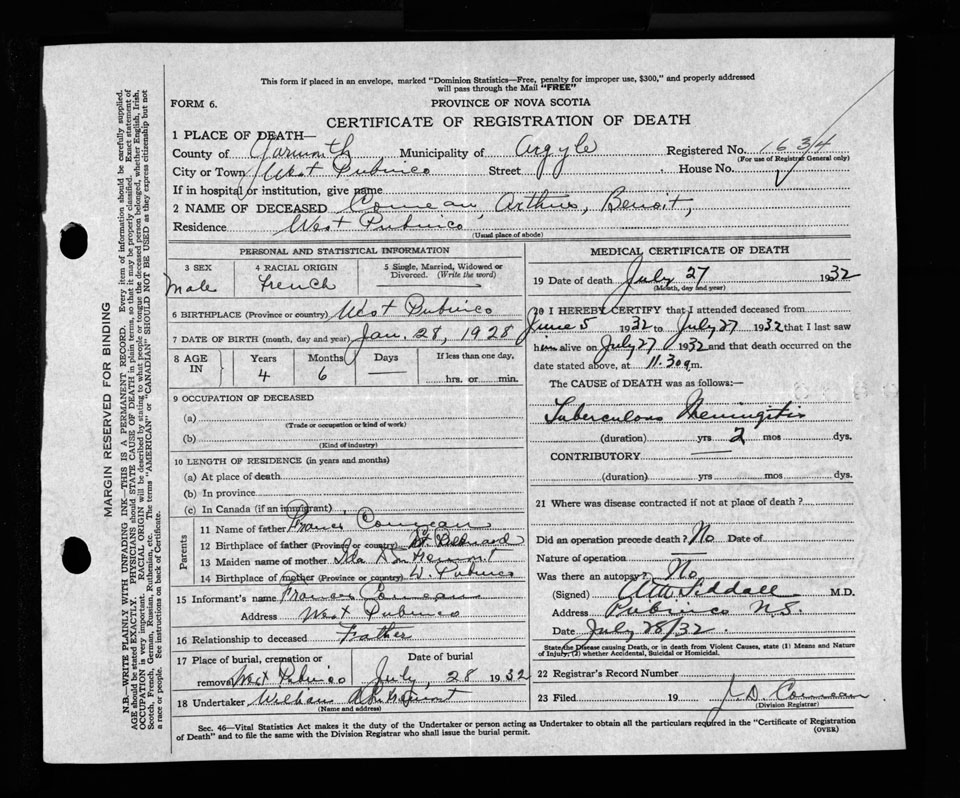 This form if placed in an envelope, marked "Dominion Statistics—Free, penalty for improper use, $300," and properly addressed
will pass through the Mail "FREE"
FORM 6.
PROVINCE OF NOVA SCOTIA
CERTIFICATE OF REGISTRATION OF DEATH
1 PLACE OF DEATH—
County of Yarmouth Municipality of Argyle Registered No. 1634
(For use of Registrar General only)
City or Town West Pubnico Street House No.
If in hospital or institution, give name
2 NAME OF DECEASED Comeau, Arthur, Benoit,
Residence West Pubnico
(Usual place of abode)
PERSONAL AND STATISTICAL INFORMATION
3 SEX 4 RACIAL ORIGIN 5 Single, Married, Widowed or Divorced. (Write the word)
Male French
6 BIRTHPLACE (Province or country) West Pubnico
7 DATE OF BIRTH (month, day and year) Jan. 28, 1928
8 AGE IN Years Months Days If less than one day,
4 6 — hrs. or min.
9 OCCUPATION OF DECEASED
(a)
(Trade or occupation or kind of work)
(b)
(Kind of industry)
10 LENGTH OF RESIDENCE (in years and months)
(a) At place of death
(b) In province
(c) In Canada (if an immigrant)
Parents
11 Name of father Francis Comeau
12 Birthplace of father (Province or country)
13 Maiden name of mother d'Entremont
14 Birthplace of mother (Province or country) W. Pubnico
15 Informant's name Francis Comeau
Address West Pubnico
16 Relationship to deceased Father
17 Place of burial, cremation or Date of burial
removal West Pubnico July, 28 1932
18 Undertaker William d'Entremont
(Name and address)
MEDICAL CERTIFICATE OF DEATH
19 Date of death July 27 1932
(Month, day and year)
20 I HEREBY CERTIFY that I attended deceased from
June 5 1932 to July 27 1932 that I last saw
him alive on July 27 1932 and that death occurred on the
date stated above, at 11.30 a m.
The CAUSE OF DEATH was as follows:
Tuberculous Meningitis
(duration) yrs 2 mos dys.
CONTRIBUTORY
(duration) yrs. mos. dys.
21 Where was disease contracted if not at place of death?
Did an operation precede death? No Date of
Nature of operation
Was there an autopsy? No
(Signed) Siddall M.D.
Address Pubnico N.S.
Date July 28/32.
State the Disease causing Death, or in death from Violent Causes, state (1) Means and Nature
of Injury, (2) whether Accidental, Suicidal or Homicidal.
22 Registrar's Record Number
23 Filed 19 J. D. Comeau
(Division Registrar)
Sec. 46—Vital Statistics Act makes it the duty of the Undertaker or person acting as Undertaker to obtain all the particulars required in the "Certificate of Registration
of Death" and to file the same with the Division Registrar who shall issue the burial permit.
(OVER)
MARGIN RESERVED FOR BINDING
N.B.—WRITE PLAINLY WITH UNFADING INK—THIS IS A PERMANENT RECORD. Every item of information should be carefully supplied.
AGE should be stated EXACTLY. PHYSICIANS should STATE CAUSE OF DEATH in plain terms, so that it may be properly classified. Exact statement of
OCCUPATION is very important. RACIAL ORIGIN will be described by stating to what people or tongue the deceased person belonged, whether English, Irish,
Scotch, French, German, Russian, Ruthenian, etc. The terms "AMERICAN" or "CANADIAN" SHOULD NOT BE USED as they express citizenship but not
a race or people. See instructions on back of Certificate.